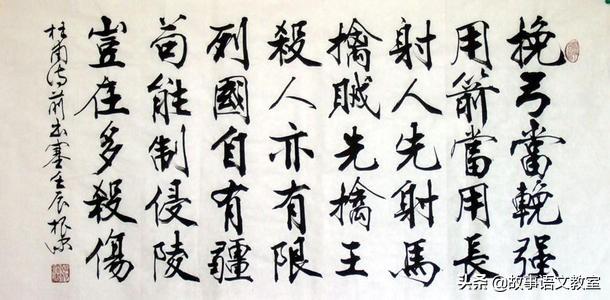 挽弓當輓强
用箭當用長
射人先射馬
擒賊先擒王
殺人亦有限
列國自有疆
苟能制侵陵
豈在多殺傷
杜甫诗前出塞壬辰
头条 @故事语文教室